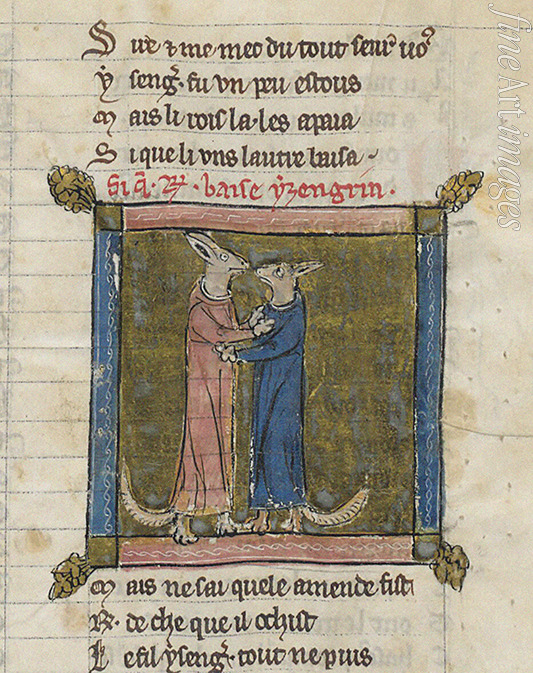 Suꝛe ⁊ me mec du tout seur uo⁹
ẏ seng̃. fu vn peu estous
mais li rois la. les apaia
Si que li vns lautre baisa.
Si q̃. R. baise ẏzengrin.
mais ne sai quele amende fist
R. de che que il ochist
Le fil ẏseng̃. tout ne puis
fineArtimages